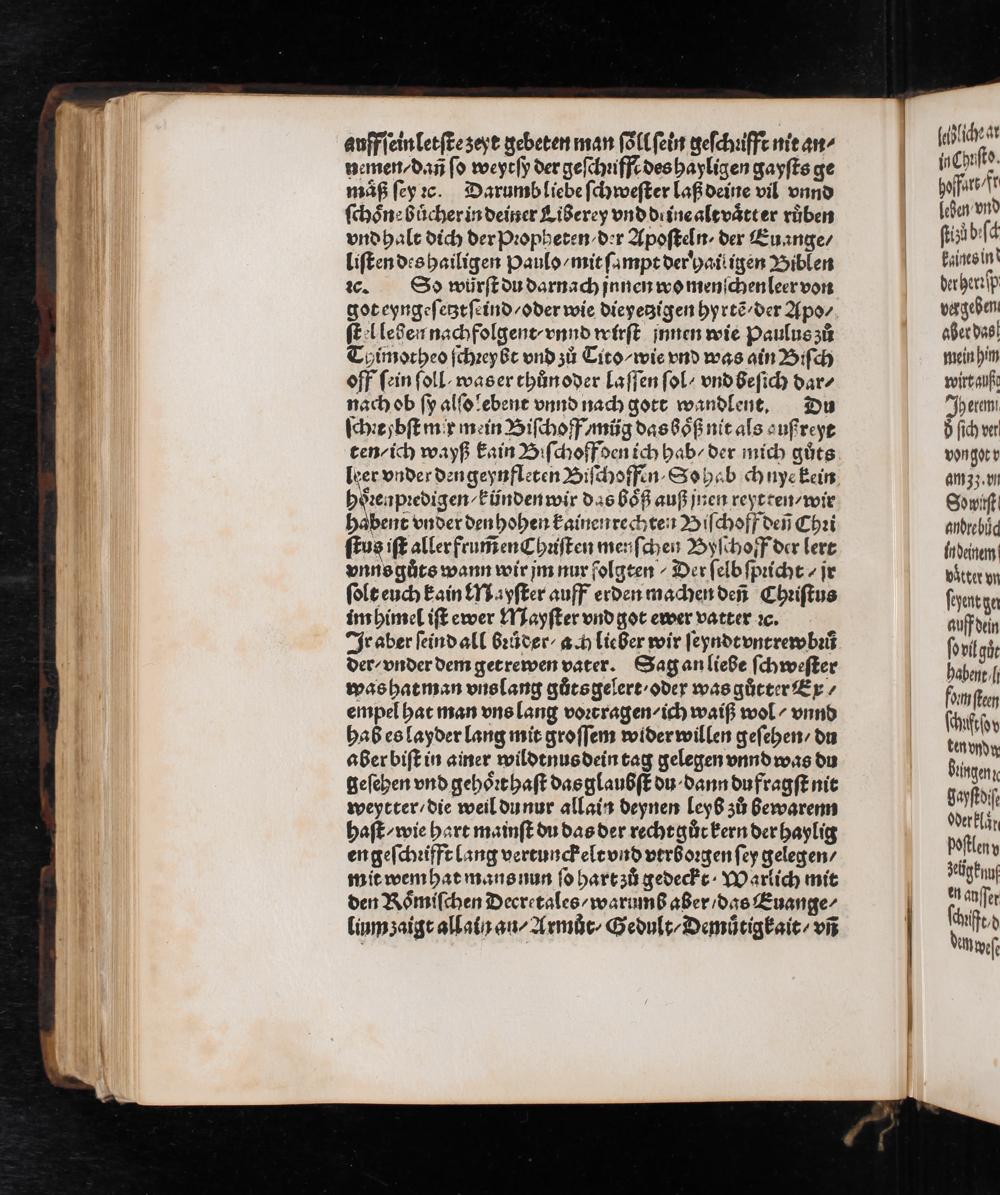 auff sein letste zeyt gebeten man söll sein geschrifft nit an/
nemen/dañ so weyt sy der geschrifft des hayligen gaysts ge
mäß sey ⁊c. Darumb liebe schwester laß deine vil vnnd
schöne bůcher in deiner Liberey vnd deine altvätter růben
vnd halt dich der Propheten/der Aposteln/der Euange/
listen des hailigen Paulo/mit sampt der hailigen Biblen
⁊c. So würst du darnach jnnen wo menschen leer von
got eyngesetzt seind/oder wie die yetzigen hyrtē/der Apo/
stel leben nachfolgent/vnnd wirst jnnen wie Paulus zů
Thimotheo schreybt vnd zů Tito/wie vnd was ain Bisch
off sein soll/was er thůn oder lassen sol/vnd besich dar/
nach ob sy also lebent vnnd nach gott wandlent. Du
schreybst mir mein Bischoff/müg das böß nit als auß reyt
ten/ich wayß kain Bischoff den ich hab/der mich gůts
leer vnder den geynfleten Bischoffen/So hab ich nye kein
hören predigen/künden wir das böß auß jnen reytten/wir
habent vnder den hohen kainen rechten Bischoff deñ Chri
stus ist aller frum̃en Christen menschen Byschoff der lert
vnns gůts wann wir jm nur folgten/Der selb spricht/jr
solt euch kain Mayster auff erden machen deñ Christus
im himel ist ewer Mayster vnd got ewer vatter ⁊c.
Jr aber seind all brüder/ach lieber wir seyndt vntrew brü̃
der/vnder dem getrewen vater. Sag an liebe schwester
was hat man vns lang gůts gelert/oder was gůtter Ex/
empel hat man vns lang vortragen/ich waiß wol/vnnd
hab es layder lang mit grossem widerwillen gesehen/du
aber bist in ainer wildtnus dein tag gelegen vnnd was du
gesehen vnd gehört hast das glaubst du/dann du fragst nit
weytter/die weil du nur allain deynen leyb zů bewarenn
hast/wie hart mainst du das der recht gůt kern der haylig
en geschrifft lang vertunckelt vnd verborgen sey gelegen/
mit wem hat mans nun so hart zů gedeckt/Warlich mit
den Römischen Decretales/warumb aber/das Euange/
lium zaigt allain an/Armůt/Gedult/Demůtigkait/vñ